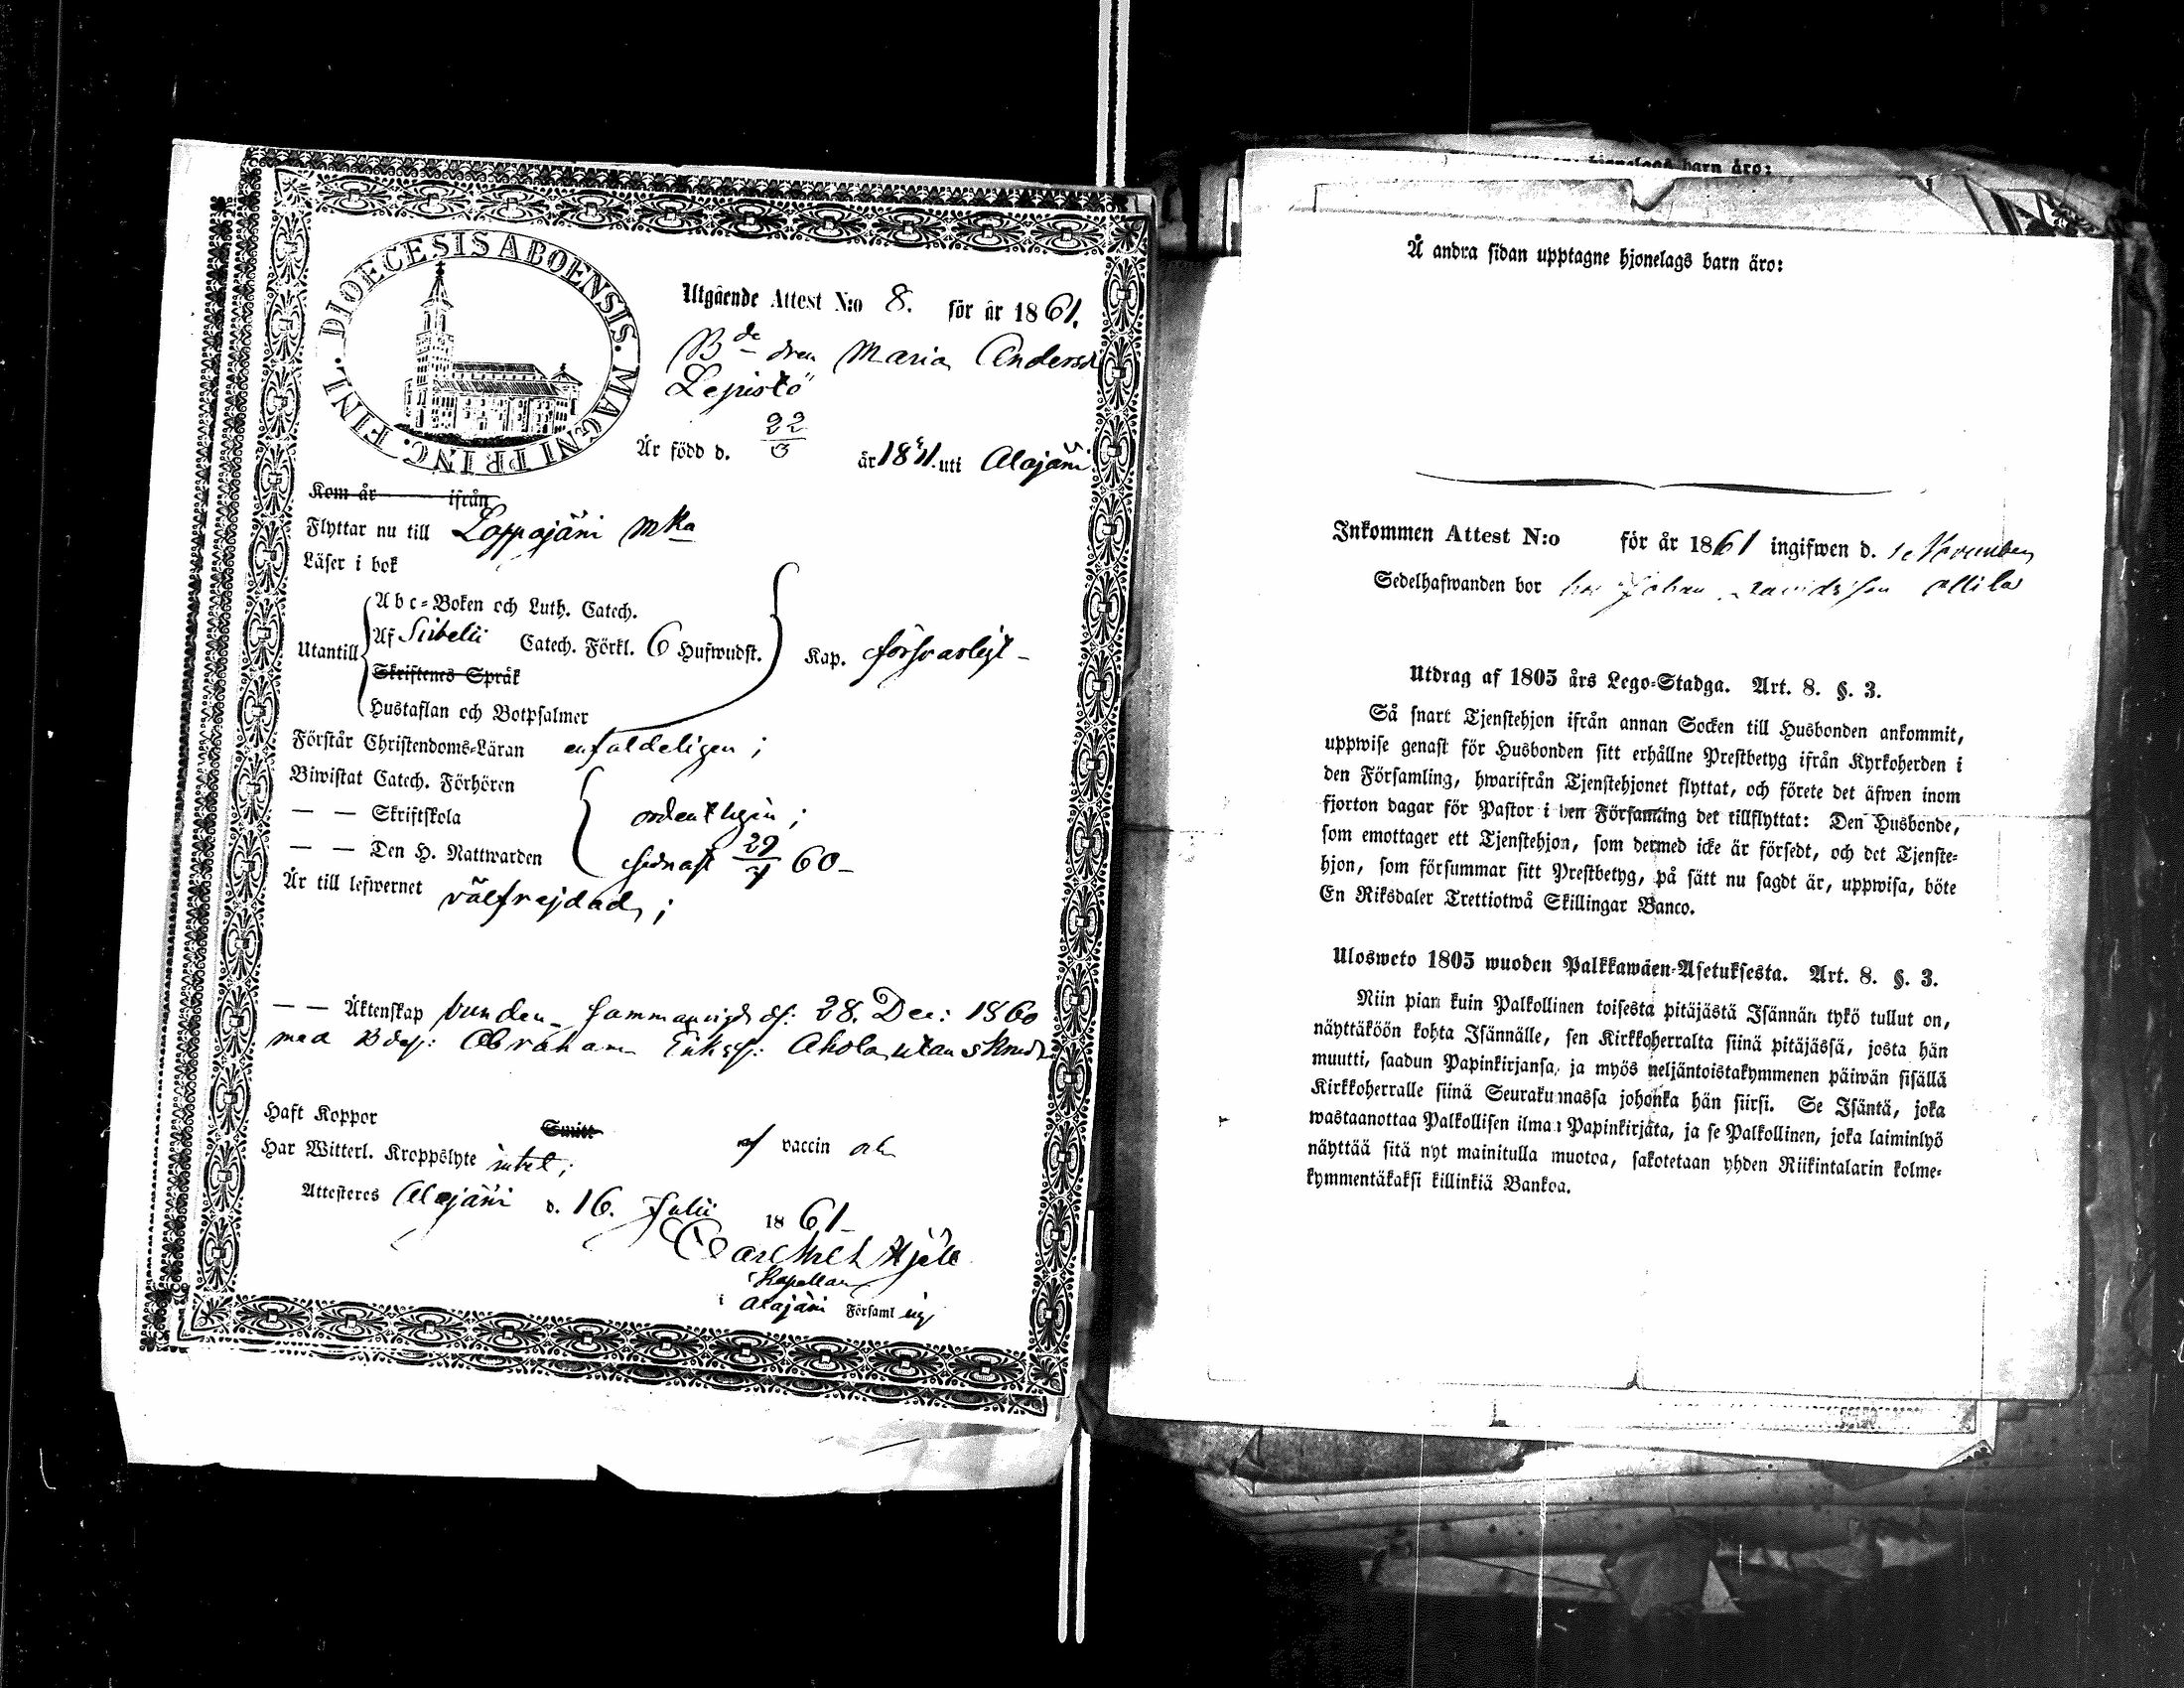 DIOECESIS ABOENSIS. MAGNI PRINC. FINL.
Utgående Attest N:o 8. för år 1861.
Bde dren Maria Andersd
Lepistö
Är född d. 22/3 år 1841. uti Alajärvi
Kom år ifrån
Flyttar nu till Lappajärvi mka
Läser i bok
Utantill
Abc-Boken och Luth. Catech.
Af Sibelii Catech. Förkl. 6 Hufwudst.
Skriftenes Språk
Hustaflan och Botpsalmer
Kap. försvarligt –
Förstår Christendoms-Läran enfaldeligen ;
Biwistat Catech. Förhören
— — Skriftskola ordentligen ;
— — Den H. Nattwarden sednast 29/ 60 –
Är till lefwernet välfrejdad ;
— — Äktenskap bunden sammanvigd d. 28. Dec: 1860
med Abraham Ahola utan
Haft Koppor Smitt af vaccin
Har Witterl. Kroppslyte intet ;
Attesteres Alajärvi d. 16. Julii 1861 –
Carl
Kapellan
i Alajärvi Församling
hjonelags barn äro:
Å andra sidan upptagne hjonelags barn äro:
Inkommen Attest N:o för år 1861 ingifwen d. November
Sedelhafwanden bor hos Johan
Utdrag af 1805 års Lego-Stadga. Art. 8. §. 3.
Så snart Tjenstehjon ifrån annan Socken till Husbonden ankommit,
uppwise genast för Husbonden sitt erhållne Prestbetyg ifrån Kyrkoherden i
den Församling, hwarifrån Tjenstehjonet flyttat, och förete det äfwen inom
fjorton dagar för Pastor i den Församling det tillflyttat: Den Husbonde,
som emottager ett Tjenstehjon, som dermed icke är försedt, och det Tjenste-
hjon, som försummar sitt Prestbetyg, på sätt nu sagdt är, uppwisa, böte
En Riksdaler Trettiotwå Skillingar Banco.
Ulosweto 1805 wuoden Palkkawäen-Asetuksesta. Art. 8. §. 3.
Niin pian kuin Palkollinen toisesta pitäjästä Isännän tykö tullut on,
näyttäköön kohta Isännälle, sen Kirkkoherralta siinä pitäjässä, josta hän
muutti, saadun Papinkirjansa, ja myös neljäntoistakymmenen päiwän sisällä
Kirkkoherralle siinä Seurakunnassa johonka hän siirsi. Se Isäntä, joka
wastaanottaa Palkollisen ilman Papinkirjata, ja se Palkollinen, joka laiminlyö
näyttää sitä nyt mainitulla muotoa, sakotetaan yhden Riikintalarin kolme-
kymmentäkaksi killinkiä Bankoa.